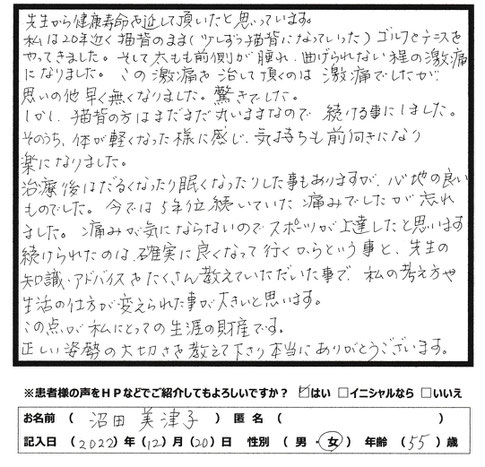 先生から健康寿命を延して頂いたと思っています。
私は20年近く猫背のまま(少しずつ猫背になっていった)ゴルフとテニスを
やってきました。そして太もも前側が腫れ、曲げられない程の激痛
になりました。この激痛を治して頂くのは激痛でしたが、
思いの他早く無くなりました。驚きでした。
しかし、猫背の方はまだまだ丸いままなので続ける事にしました。
そのうち、体が軽くなった様に感じ、気持ちも前向きになり
楽になりました。
治療後はだるくなったり眠くなったりした事もありますが、心地の良い
ものでした。今では5年位続いていた痛みでしたが忘れ
ました。痛みが気にならないのでスポーツが上達したと思います
続けられたのは、確実に良くなって行くからという事と、先生の
知識・アドバイスをたくさん教えていただいた事で、私の考え方や
生活の仕方が変えられた事が大きいと思います。
この点が私にとっての生涯の財産です。
正しい姿勢の大切さを教えて下さり本当にありがとうございます。
※患者様の声をHPなどでご紹介してもよろしいですか? ☑はい □イニシャルなら □いいえ
お名前 ( 沼田 美津子 ) 匿名 ( )
記入日 (2022)年(12)月(20)日 性別 (男・女) 年齢 (55)歳